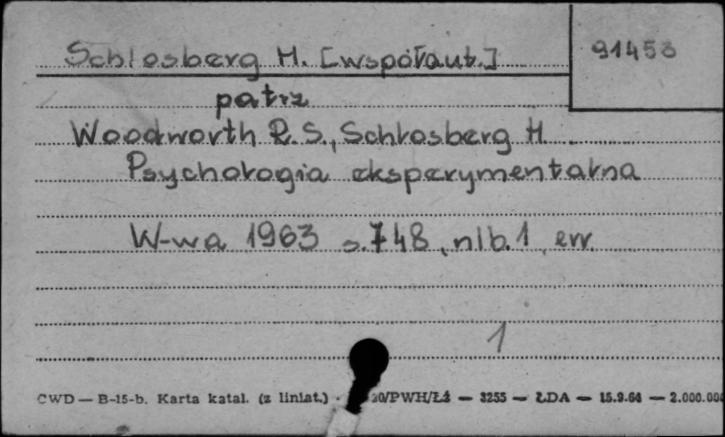 Schlosberg H. [współaut.]
91453
patrz
Woodworth R. S., Schlosberg H.
Psychologia eksperymentalna
W-wa 1963 s. 748, nlb. 1, err.
1
CWD — B-15-b. Karta katal. (z liniat.) 20/PWH/Łż — 3255 — ŁDA — 15.9.64 — 2.000.000